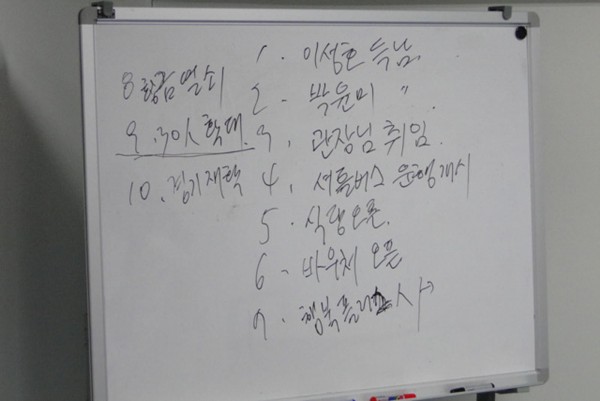 1. 이성호 득남
2 - 박윤미 〃.
3. 관장님 취임.
4. 셔틀버스 운행개시
5. 식당오픈.
6 - 바우처 오픈
7. 행복플러스
8 황금열쇠
9. 30人 확대.
10. 경기재학